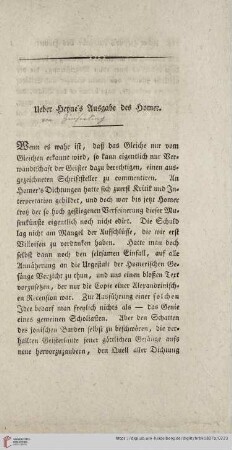 Ueber Heyne's Ausgabe des Homer.
Wenn es wahr ist, daß das Gleiche nur vom
Gleichen erkannt wird, so kann eigentlich nur Ver-
wandtschaft der Geister dazu berechtigen, einen aus-
gezeichneten Schriftsteller zu commentiren. An
Homer's Dichtungen hatte sich zuerst Kritik und In-
terpretation gebildet, und doch war bis jetzt Homer
trotz der so hoch gestiegenen Verfeinerung dieser Mu-
senkünste eigentlich noch nicht edirt. Die Schuld
lag nicht am Mangel der Aufschlüsse, die wir erst
Villoison zu verdanken haben. Hatte man doch
selbst dann noch den seltsamen Einfall, auf alle
alle Annäherung an die Urgestalt der Homerischen Ge-
sänge Verzicht zu thun, und uns einen bloßen Text
vorzusetzen, der nur die Copie einer Alexandrinisch-
en Recension war. Zur Ausführung einer solchen
Idee bedarf man freylich nichts als — das Genie
eines gemeinen Scholiasten. Aber den Schatten
des jonischen Barden selbst zu beschwören, die ver-
hallten Geisterlaute jener göttlichen Gesänge aufs
neue hervorzuzaubern, den Quell aller Dichtung